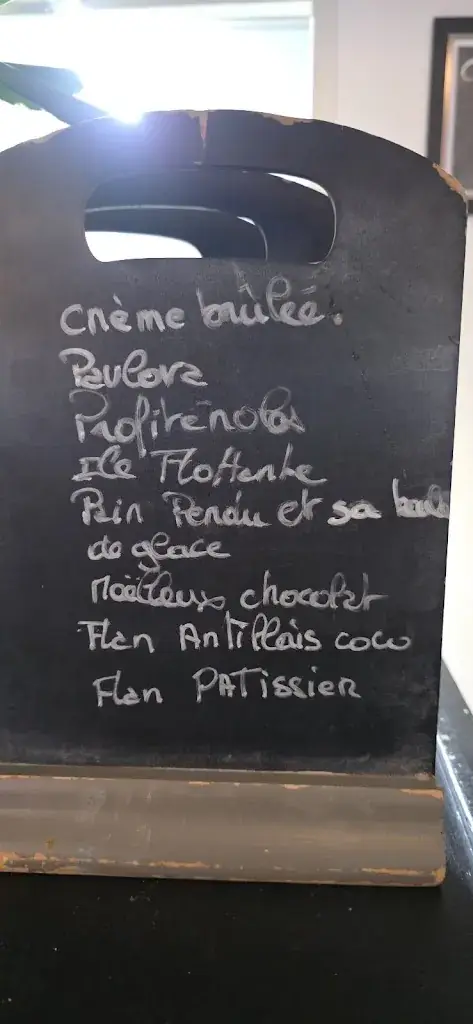 Crème brûlée.
Pavlova
Profiteroles
Ile Flottante
Pain Perdu et sa boule
de glace
Moëlleux chocolat
Flan Antillais coco
Flan PATissieR